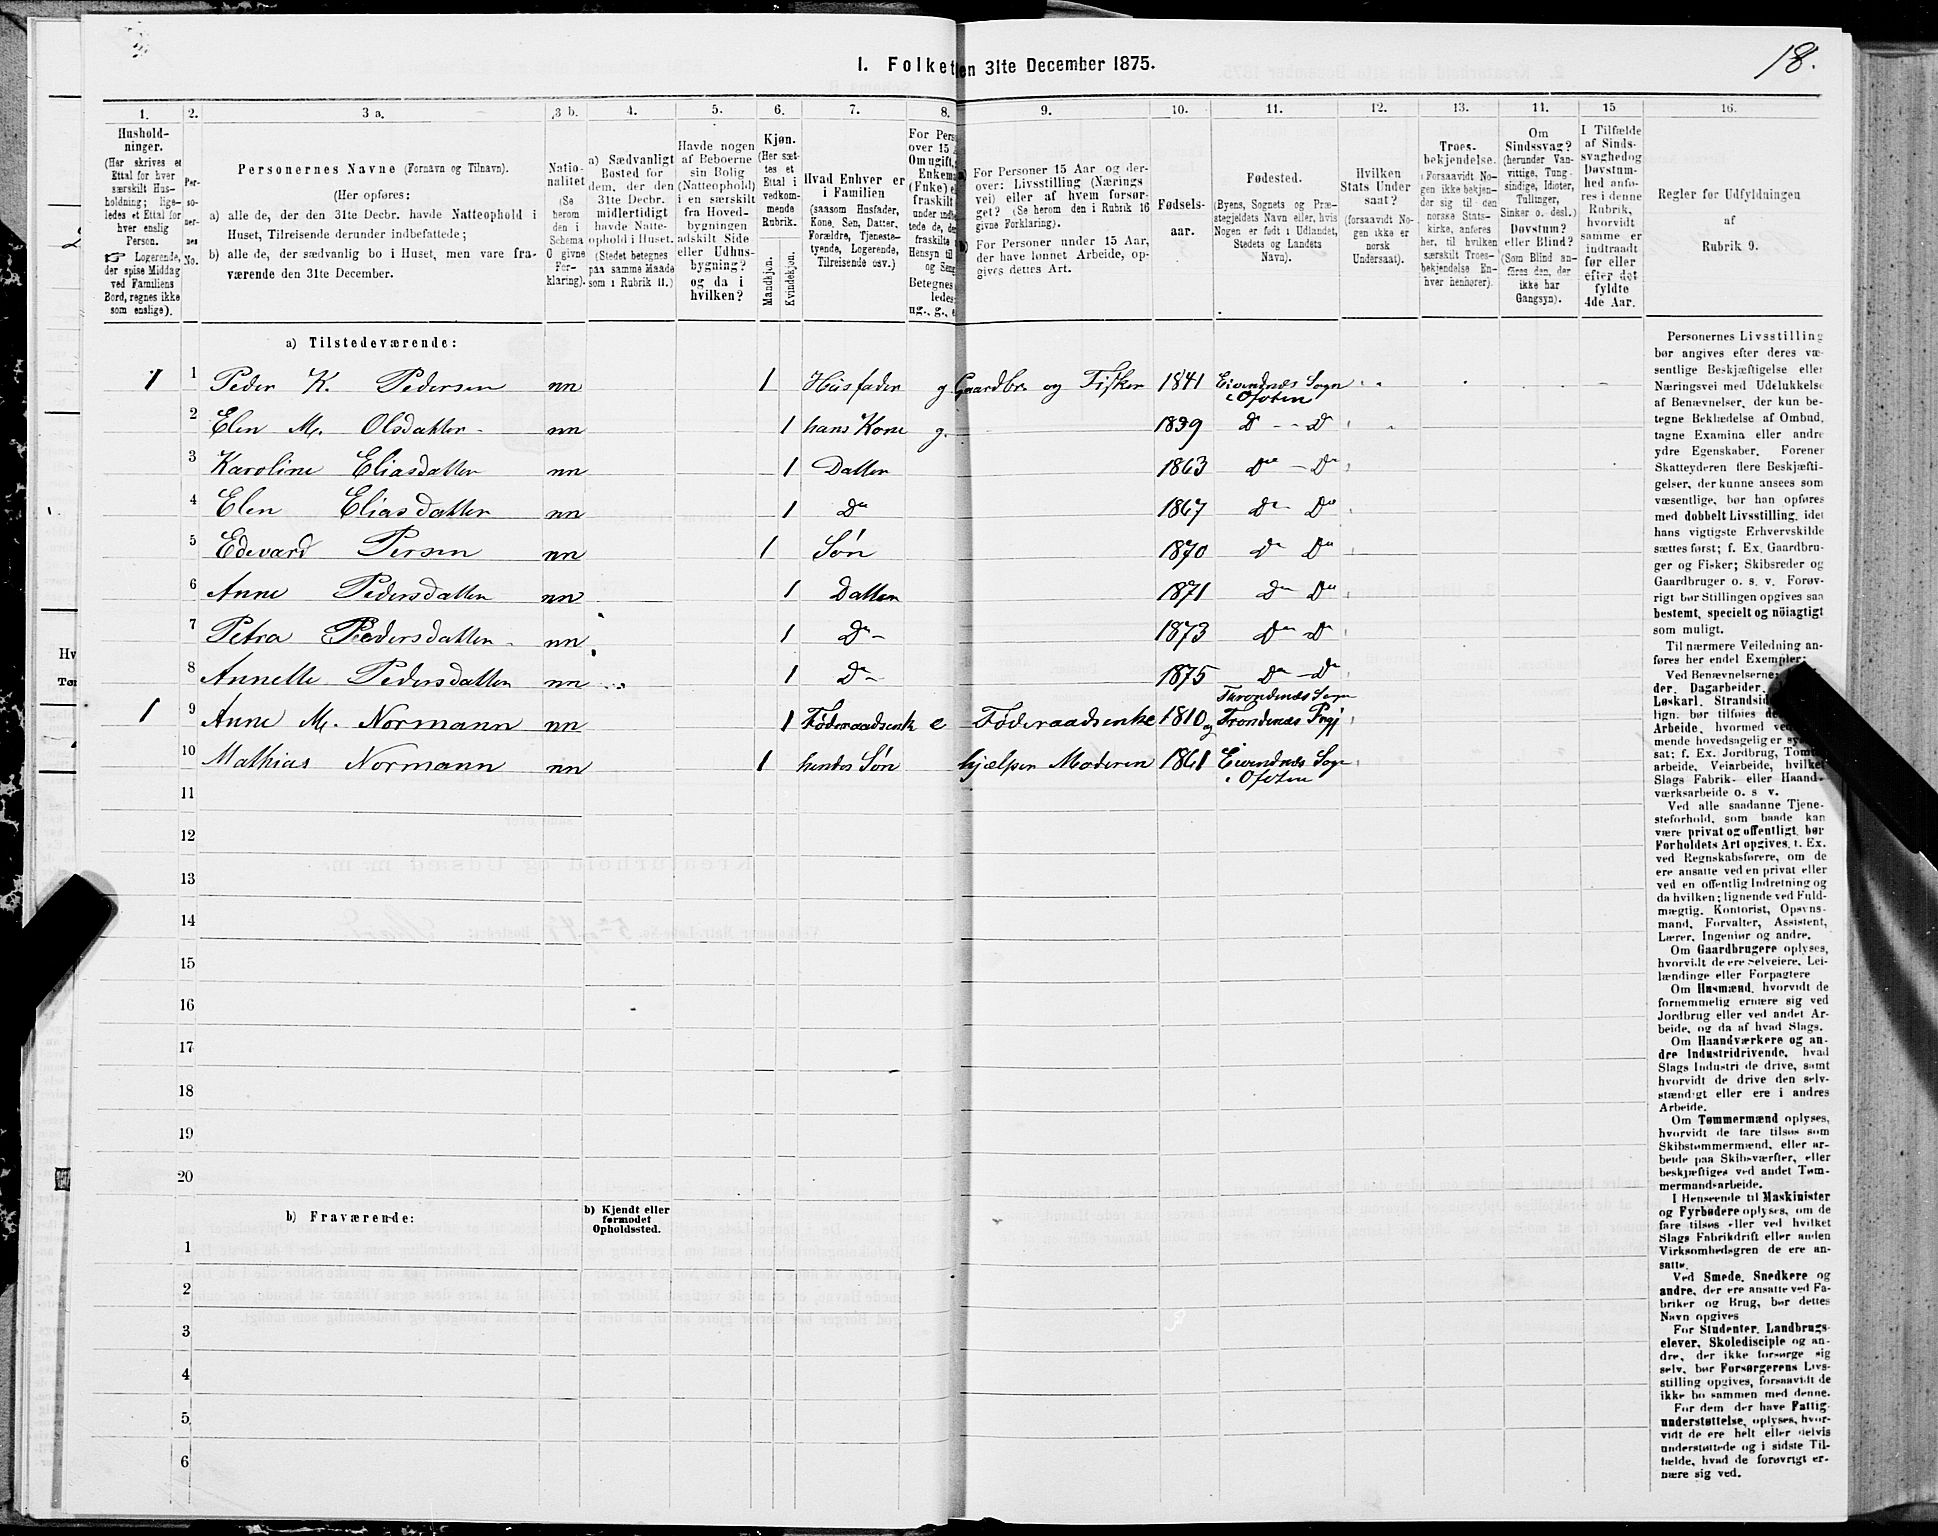 18.
I. Folket
en 31te December 1875.
1. 2. 3 a. 3 b. 4. 5. 6. 7. 8. 9. 10. 11. 12. 13. 11. 15 16.
Hushold-
ninger.
(Her skrives et
Ettal for hver
særskilt Hus-
holdning; lige-
ledes et Ettal for
hver enslig
Person.
☞ Logerende,
der spise Middag
ved Familiens
Bord, regnes ikke
som enslige).
Per-
so-
ner-
nes
No.
Personernes Navne (Fornavn og Tilnavn).
(Her opføres:
a) alle de, der den 31te Decbr. havde Natteophold i
Huset, Tilreisende derunder indbefattede;
b) alle de, der sædvanlig bo i Huset, men vare fra-
værende den 31te December.
Natio-
nalitet
(Se
herom
den i
Schema
O givne
For-
klaring).
a) Sædvanligt
Bosted for
dem, der den
31te Decbr.
midlertidigt
havde Natte-
ophold i Huset.
(Stedet betegnes
paa samme Maade
som i Rubrik 11.)
Havde nogen
af Beboerne
sin Bolig
(Natteophold)
i en særskilt
fra Hoved-
bygningen
adskilt Side
eller Udhus-
bygning?
og da i
hvilken?
Kjøn.
(Her sæt-
tes et
Ettal i
vedkom-
mende
Rubrik.
Mandkjøn.
Kvindekjøn.
Hvad Enhver er
i Familien
(saasom Husfader,
Kone, Søn, Datter,
Forældre, Tjeneste-
tyende, Logerende,
Tilreisende osv.)
For Pers
over 15 A
Om ugift,
Enkema
(Fnke) e
fraskilt
under indbe
tede de, der
fraskilte
Hensyn til
og Seng
Betegnes
ledes:
ug., g., e
For Personer 15 Aar og der-
over: Livsstilling (Nærings
vei) eller af hvem forsør-
get? (Se herom den i Rubrik 16
givne Forklaring).
For Personer under 15 Aar,
der have lønnet Arbeide, op-
gives dettes Art.
Fødsels-
aar.
Fødested.
(Byens, Sognets og Præ-
stegjeldets Navn eller, hvis
Nogen er født i Udlandet,
Stedets og Landets
Navn).
Hvilken
Stats Under
saat?
(forsaavidt No-
gen ikke er
norsk
Undersaat).
Troes-
bekjendelse.
(Forsaavidt No-
gen ikke bekjen-
der sig til den
norske Stats-
kirke, anføres
her, til hvilken
særskilt Troes-
bekjendelse En-
hver henhører).
Om
Sindssvag?
(herunder Van-
vittige, Tung-
sindige, Idioter,
Tullinger,
Sinker o. desl.)
Døvstum?
eller Blind?
(Som Blind an-
føres den, der
ikke har
Gangsyn).
I Tilfælde
af Sinds-
svaghed og
Døvstum-
hed anfø-
res i denne
Rubrik,
hvorvidt
samme er
indtraadt
før eller
efter det
fyldte
4de Aar.
Regler før Udfyldningen
af
Rubrik 9.
a) Tilstedeværende:
1 1 Peder K. Pedersen nn 1 Husfader g. Gaardbr og Fisker 1841 Eivindnæs Sogn
i Ofoten
2 Elen M. Olsdatter nn 1 hans Kone g. 1839 Do - - Do
3 Karoline Eliasdatter nn 1 Datter 1863 Do - Do
4 Elen Eliasdatter nn 1 Do 1867 Do Do
5 Edevard Persen nn 1 Søn 1870 Do Do
6 Anne Pedersdatter nn 1 Datter 1871 Do Do
7 Petra Pedersdatter nn 1 Do 1873 Do Do
8 Annette Pedersdatter nn 1 Do 1875 Do - Do
Throndenæs Sogn
1 9 Anne M. Normann nn 1 Føderaadsenk e Føderaadsenke 1810 og Trondenæs Prgj
10 Mathias Normann nn 1 hendes Søn hjælper Moderen 1861 Eivindnæs Sogn
i Ofoten
11
12
13
14
15
16
17
18
19
20
b) Fraværende:
b) Kjendt eller
formodet
Opholdssted.
1
2
3
4
5
6
Personernes Livsstilling
bør angives efter deres væ-
sentlige Beskjæftigelse eller
Næringsvei med Udelukkelse
af Benævnelser, der kun be-
tegne Beklædelse af Ombud,
tagne Examina eller andre
ydre Egenskaber. Forener
Skatteyderen flere Beskjæfti-
gelser, der kunne ansees som
væsentlige, bør han opføres
med dobbelt Livsstilling, idet
hans vigtigste Erhvervskilde
sættes først; f. Ex. Gaardbru-
ger og Fisker; Skibsreder og
Gaardbruger o. s. v. Forøv-
rigt bør Stillingen opgives saa
bestemt, specielt og nöiagtigt
som muligt.
Til nærmere Veiledning an-
føres her endel Exempler:
Ved Benævnelserne:
der, Dagarbeider,
Løskarl, Strandsid
lign. bør tilføies de
Arbeide, hvormed ved
mende hovedsagelig er sys
sat; f. Ex. Jordbrug, Tom
arbeide, Veiarbeide, hvilket
Slags Fabrik- eller Haand-
værksarbeide o. s v.
Ved alle saadanne Tjene-
steforhold, som baade kan
være privat og offentligt, bør
Forholdets Art opgives, t. Ex.
ved Regnskabsførere, om de
ere ansatte ved en privat eller
ved en offentlig Indretning og
da hvilken; lignende ved Fuld-
mægtig, Kontorist, Opsyns-
mand, Forvalter, Assistent,
Lærer, Ingeniør og andre.
Om Gaardbrugere oplyses,
hvorvidt de ere Selveiere, Lei-
lændinge eller Forpagtere
Om Husmænd, hvorvidt de
fornemmelig ernære sig ved
Jordbrug eller ved andet Ar-
beide, og da af hvad Slags.
Om Haandværkere og an-
dre Industridrivende, hvad
Slags Industri de drive, samt
hvorvidt de drive den selv-
stændigt eller ere i andres
Arbeide.
Om Tømmermænd oplyses,
hvorvidt de fare tilsøs som
Skibstømmermænd, eller ar-
beide paa Skibsværfter, eller
beskjæftiges ved andet Tøm-
mermandsarbeide.
I Henseende til Maskinister
og Fyrbødere oplyses, om de
fare tilsøs eller ved hvilket
Slags Fabrikdrift eller anden
Virksomhedsgren de ere an-
satte.
Ved Smede, Snedkere og
andre, der ere ansatte ved Fa-
briker og Brug, bør dettes
Navn opgives
For Studenter, Landbrugs-
elever, Skoledisciple og an-
dre, der ikke forsørge sig
selv, bør Forsørgerens Livs-
stilling opgives, forsaavidt de
ikke bo sammen med denne.
For dem der have Fattig-
understøttelse, oplyses, hvor-
vidt de ere helt eller delvis
understøttede og i sidste Til-
fælde, hvad de forøvrigt er-
nære sig ved.